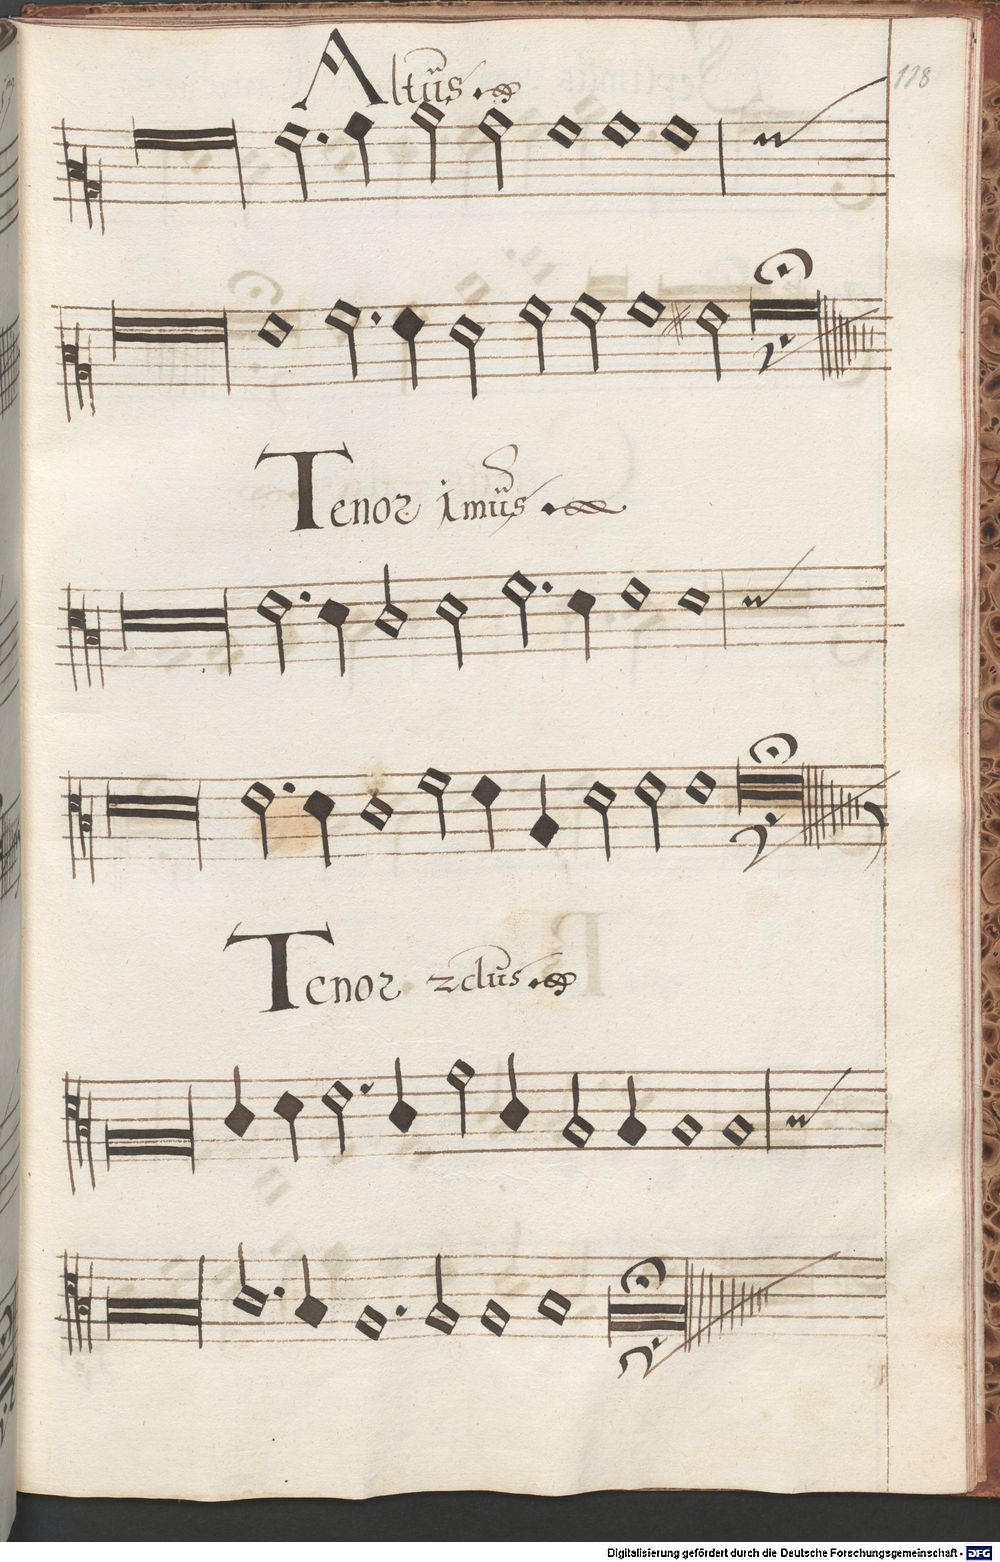 Altus
118
Tenor imus
Tenor 2dus
Digitalisierung gefördert durch die Deutsche Forschungsgemeinschaft - DFG